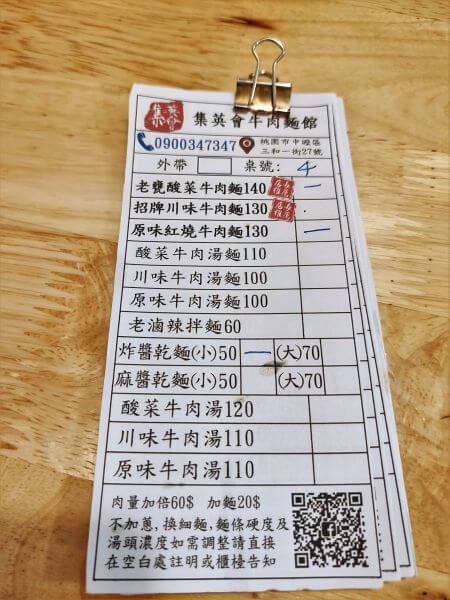 集英會
集英會牛肉麵館
0900347347
桃園市中壢區
三和一街27號
外帶 桌號: 4
老甕酸菜牛肉麵140 一
招牌川味牛肉麵130
原味紅燒牛肉麵130 一
酸菜牛肉湯麵110
川味牛肉湯麵100
原味牛肉湯麵100
老滷辣拌麵60
炸醬乾麵(小)50 一 (大)70
麻醬乾麵(小)50 (大)70
酸菜牛肉湯120
川味牛肉湯110
原味牛肉湯110
肉量加倍60$ 加麵20$
不加蔥,換細麵,麵條硬度及
湯頭濃度如需調整請直接
在空白處註明或櫃檯告知